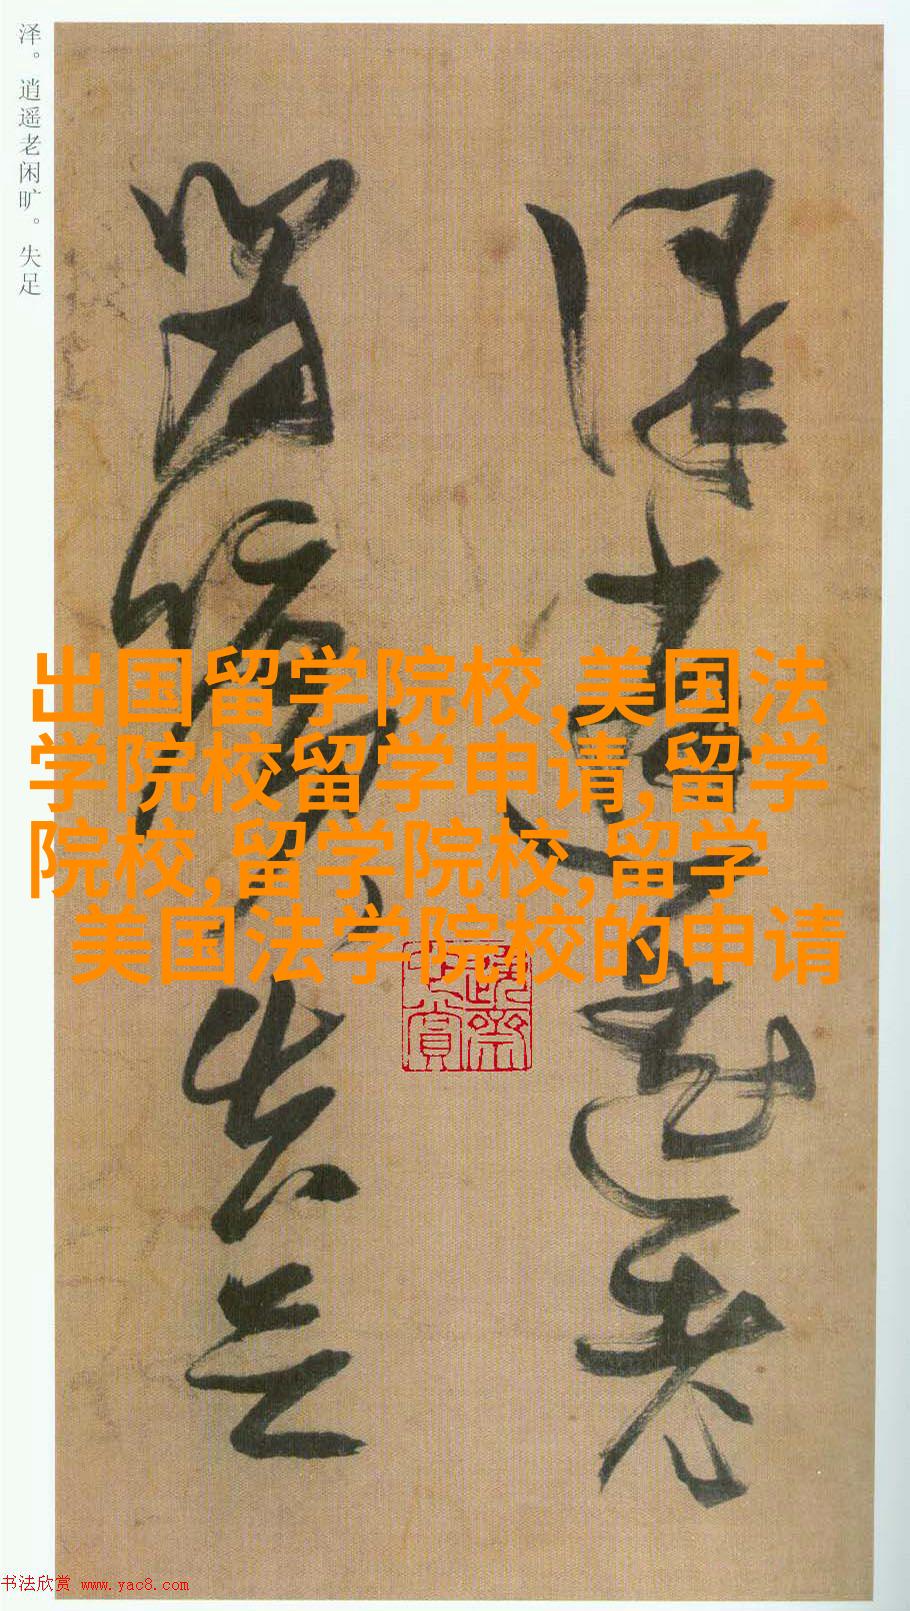 泽。逍遥老闲旷。失足
泽逍遥老
闲旷失足
出国留学院校,美国法
学院校留学申请,留学
院校,留学院校,留学
美国法学院校的申请
书法欣赏 www.yac8.com